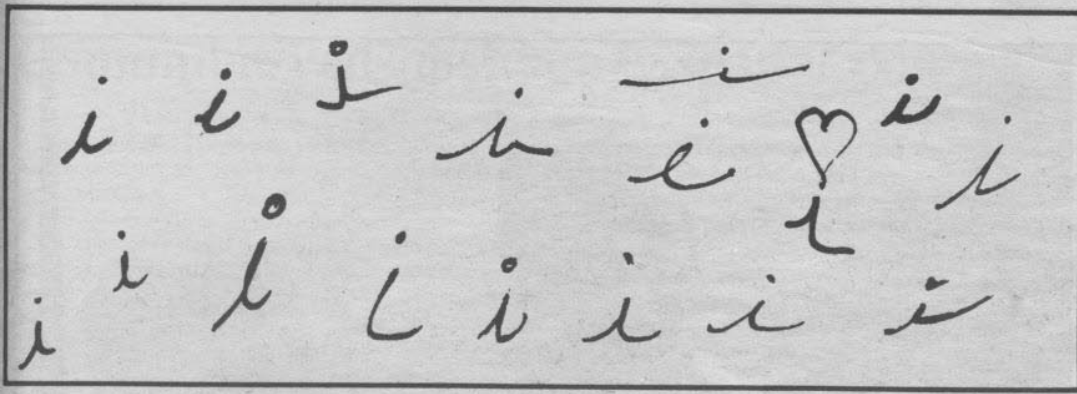 i i i i i i i i i
i i i i i i i i